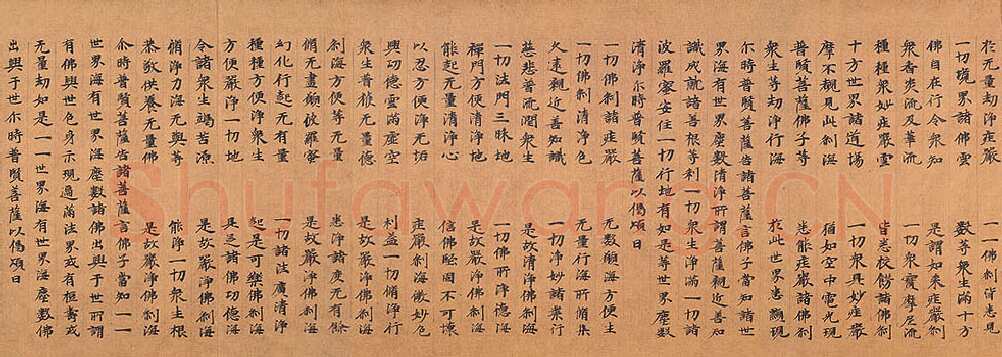 於无量劫淨庄嚴 一一佛刹皆悉見
一切境界諸佛雲 數等衆生滿十方
佛自在行令衆知 是謂如来庄嚴刹
衆香炎流及華流 一切衆寶摩尼流
種種衆妙庄嚴雲 皆悉校餝諸佛刹
十方世界諸道場 一切衆具妙庄嚴
摩不覩見此刹海 猶如空中電光現
普賢菩薩佛子等 悉能庄嚴諸佛刹
衆生等劫淨行海 於此世界悉顯現
尒時普賢菩薩告諸菩薩言佛子當知諸世
界海有世界塵數清淨所謂菩薩親近善知
識成就諸善根等利一切衆生淨滿一切諸
波羅蜜安住一切行地有如是等世界塵數
清淨尒時普賢菩薩以偈頌曰
一切佛刹諸庄嚴 无數願海方便生
一切佛刹清淨色 无量行海所脩集
久遠親近善知識 一切淨妙諸業行
慈悲普流潤衆生 是故清淨諸佛刹
一切法門三昧地 一切佛所淨德海
禪門方便清淨地 是故嚴淨佛刹海
能起无量清淨心 信佛堅固不可壞
以忍方便淨无垢 庄嚴刹海微妙色
興功德雲滿虚空 利益一切脩淨行
衆生普被无量德 是故嚴淨佛刹海
刹海方便等无量 悉淨諸度无有餘
脩无盡願波羅蜜 是故嚴淨佛刹海
幻化行起无有量 一切諸法廣清淨
種種方便淨衆生 起是可樂佛刹海
方便嚴淨一切地 具足諸佛功德海
令諸衆生竭苦源 是故嚴淨佛刹海
脩淨力海无與等 能淨一切衆生根
恭敬供養无量佛 是故嚴淨佛刹海
尒時普賢菩薩告諸菩薩言佛子當知一一
世界海有世界海塵數諸佛出興于世所謂
有佛興世色身示現遍滿法界或有短壽或
无量劫如是一一世界海有世界海塵數佛
出興于世尒時普賢菩薩以偈頌曰
Shufawang.CN